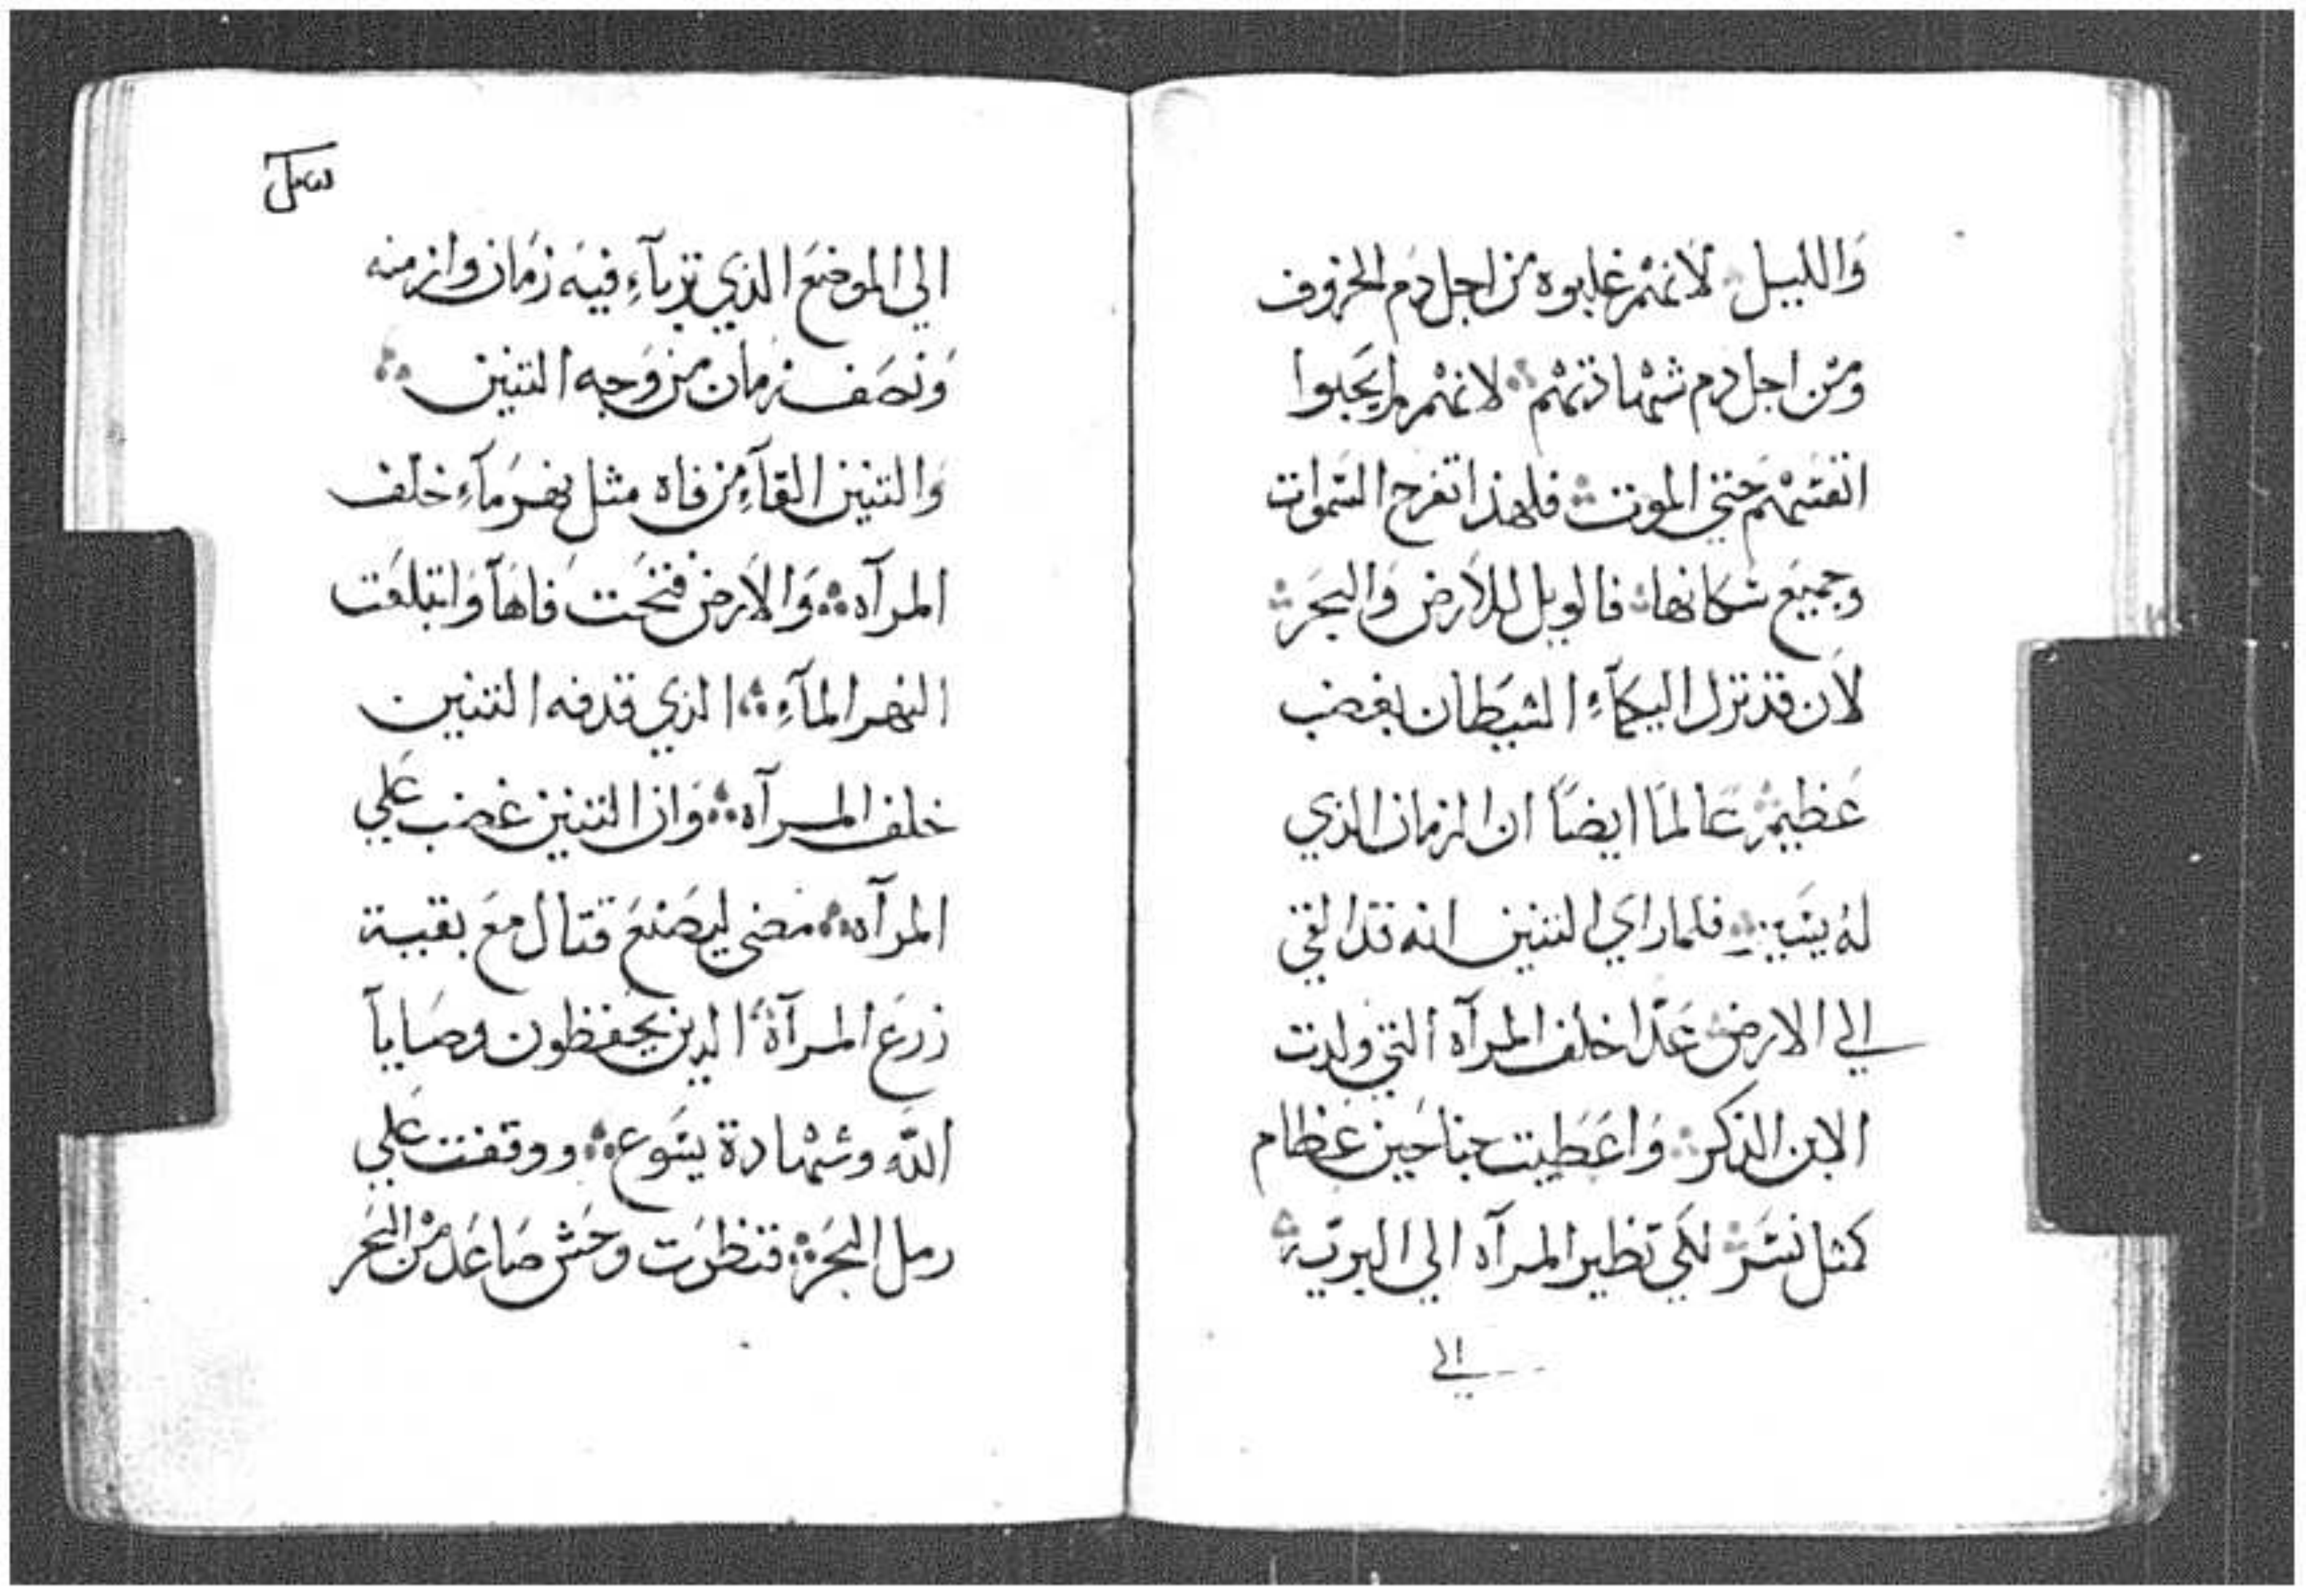 وَالليل لانهم غلبوه من اجل دم الخروف
ومن اجل دم شهادتهم لانهم لم يحبوا
انفسهم حتي الموت فلهذا تفرح السموات
وجميع سكانها فالويل للارض وَالبحر
لان قد نزل اليكمآء الشيطان بغضب
عظيم عالماً ايضاً ان الزمان الذي
له يسير فلما راي التنين انه قد القي
الي الارض عدا خلف المرآه التي ولدت
الابن الذكر وَاعطيت جناحين عظام
كمثل نسر لكي تطير المرآه الي البريه
الي
الي الموضع الذي تربآء فيه زمان وازمنه
وَنصف زمان من وجه التنين
وَالتنين القآء من فاه مثل نهر مآء خلف
المرآه وَالارض فتحت فاهآ وَابتلعت
النهر المآء الذي قدفه التنين
خلف المرآه وَان التنين غضب علي
المرآه مضي ليصنع قتال مع بقية
زرع المرآة الدين يحفظون وصايآ
الله وشهادة يسوع ووقفت علي
رمل البحر فنظرت وحش صاعد من البحر